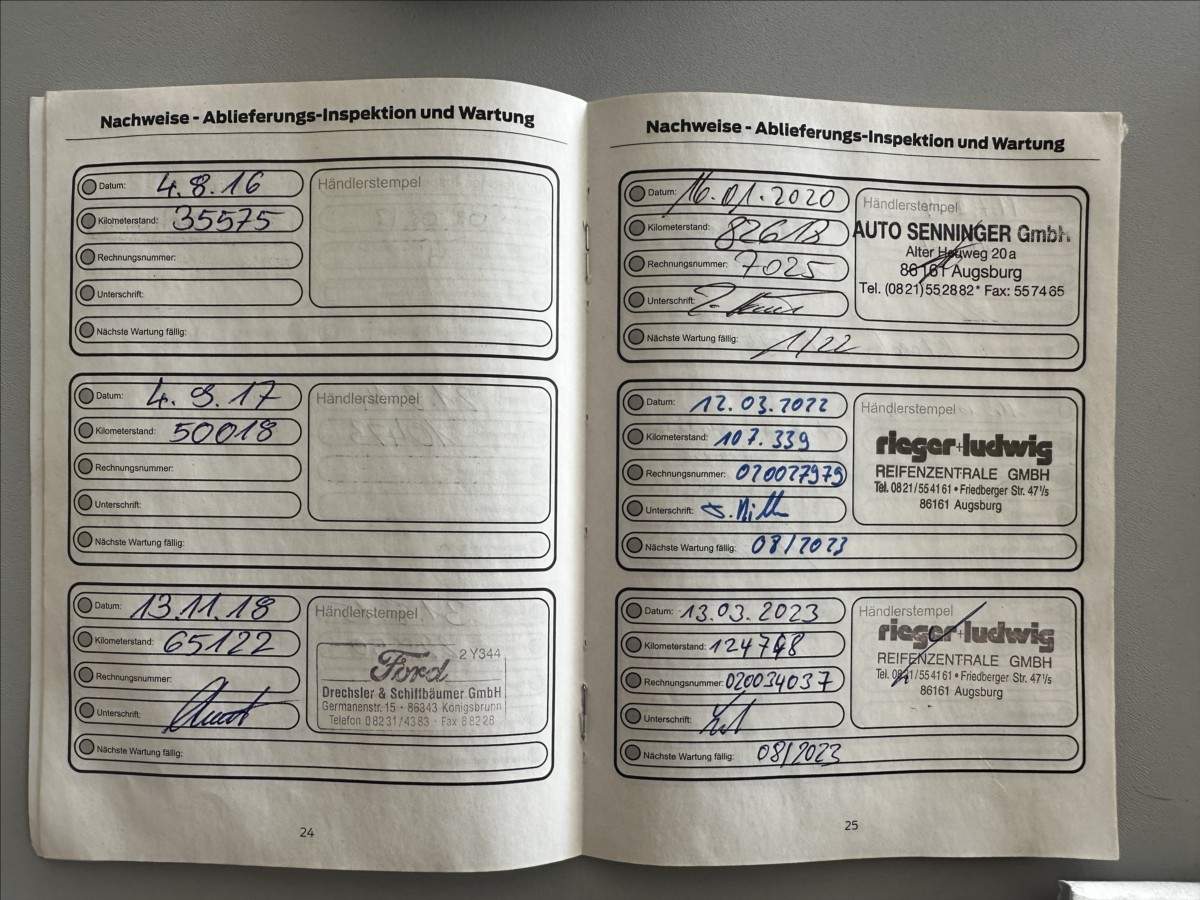 Nachweise - Ablieferungs-Inspektion und Wartung
Datum: 4.8.16
Händlerstempel
Kilometerstand: 35575
Rechnungsnummer:
Unterschrift:
Nächste Wartung fällig:
Datum: 4.9.17
Händlerstempel
Kilometerstand: 50018
Rechnungsnummer:
Unterschrift:
Nächste Wartung fällig:
Datum: 13.11.18
Händlerstempel
Kilometerstand: 65122
Rechnungsnummer:
Unterschrift:
2 Y344
Ford
Drechsler & Schiffbäumer GmbH
Germanenstr. 15 · 86343 Königsbrunn
Telefon 08231/4383 · Fax 88228
Nächste Wartung fällig:
24
Nachweise - Ablieferungs-Inspektion und Wartung
Datum: 16.01.2020
Händlerstempel
Kilometerstand: 82618
Rechnungsnummer: 7025
Unterschrift:
AUTO SENNINGER GmbH
Alter Heuweg 20 a
86161 Augsburg
Tel. (0821) 552882 * Fax: 557465
Nächste Wartung fällig: 1/22
Datum: 12.03.2022
Händlerstempel
Kilometerstand: 107.339
Rechnungsnummer: 020027979
Unterschrift:
rieger+ludwig
REIFENZENTRALE GMBH
Tel. 0821/554161 • Friedberger Str. 47 1/s
86161 Augsburg
Nächste Wartung fällig: 08/2023
Datum: 13.03.2023
Händlerstempel
Kilometerstand: 124748
Rechnungsnummer: 020034037
Unterschrift:
rieger+ludwig
REIFENZENTRALE GMBH
Tel. 0821/554161 • Friedberger Str. 47 1/s
86161 Augsburg
Nächste Wartung fällig: 08/2023
25